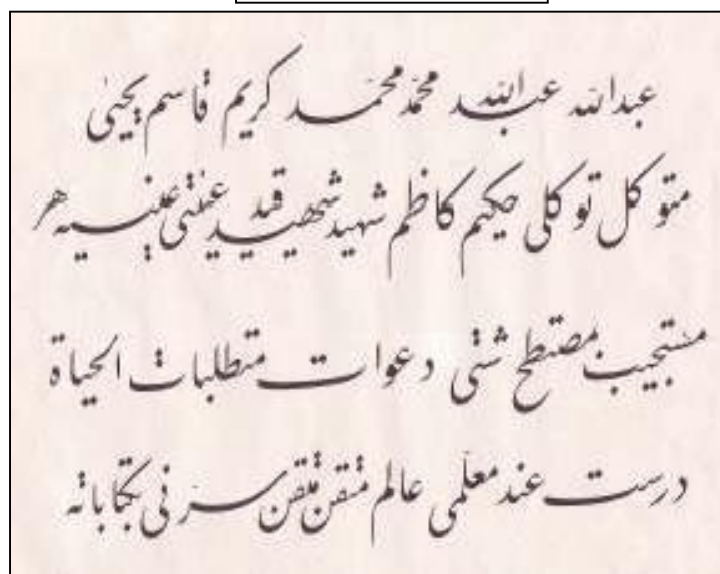 عبدالله عبدالله محمد محمد كريم قاسم يحيى
متوكل توكلي حكيم كاظم شهيد شهيد قيد
مستجيب شتى دعوات متطلبات الحياة
درست عند معلمي عالم متقن متقن سرني بكتاباته